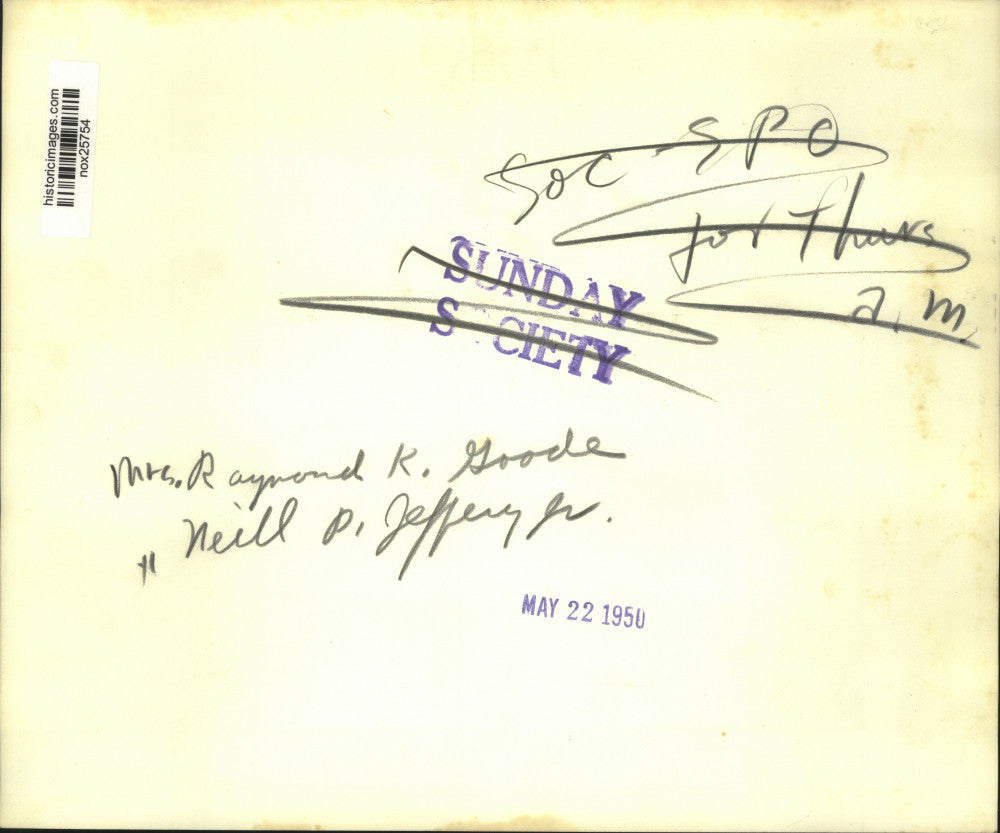 historicimages.com
nox25754
Soc SPO
for Thurs
a.m.
SUNDAY
SOCIETY
Mrs. Raymond K. Goode
" Neill P. Jeffery Jr.
MAY 22 1950